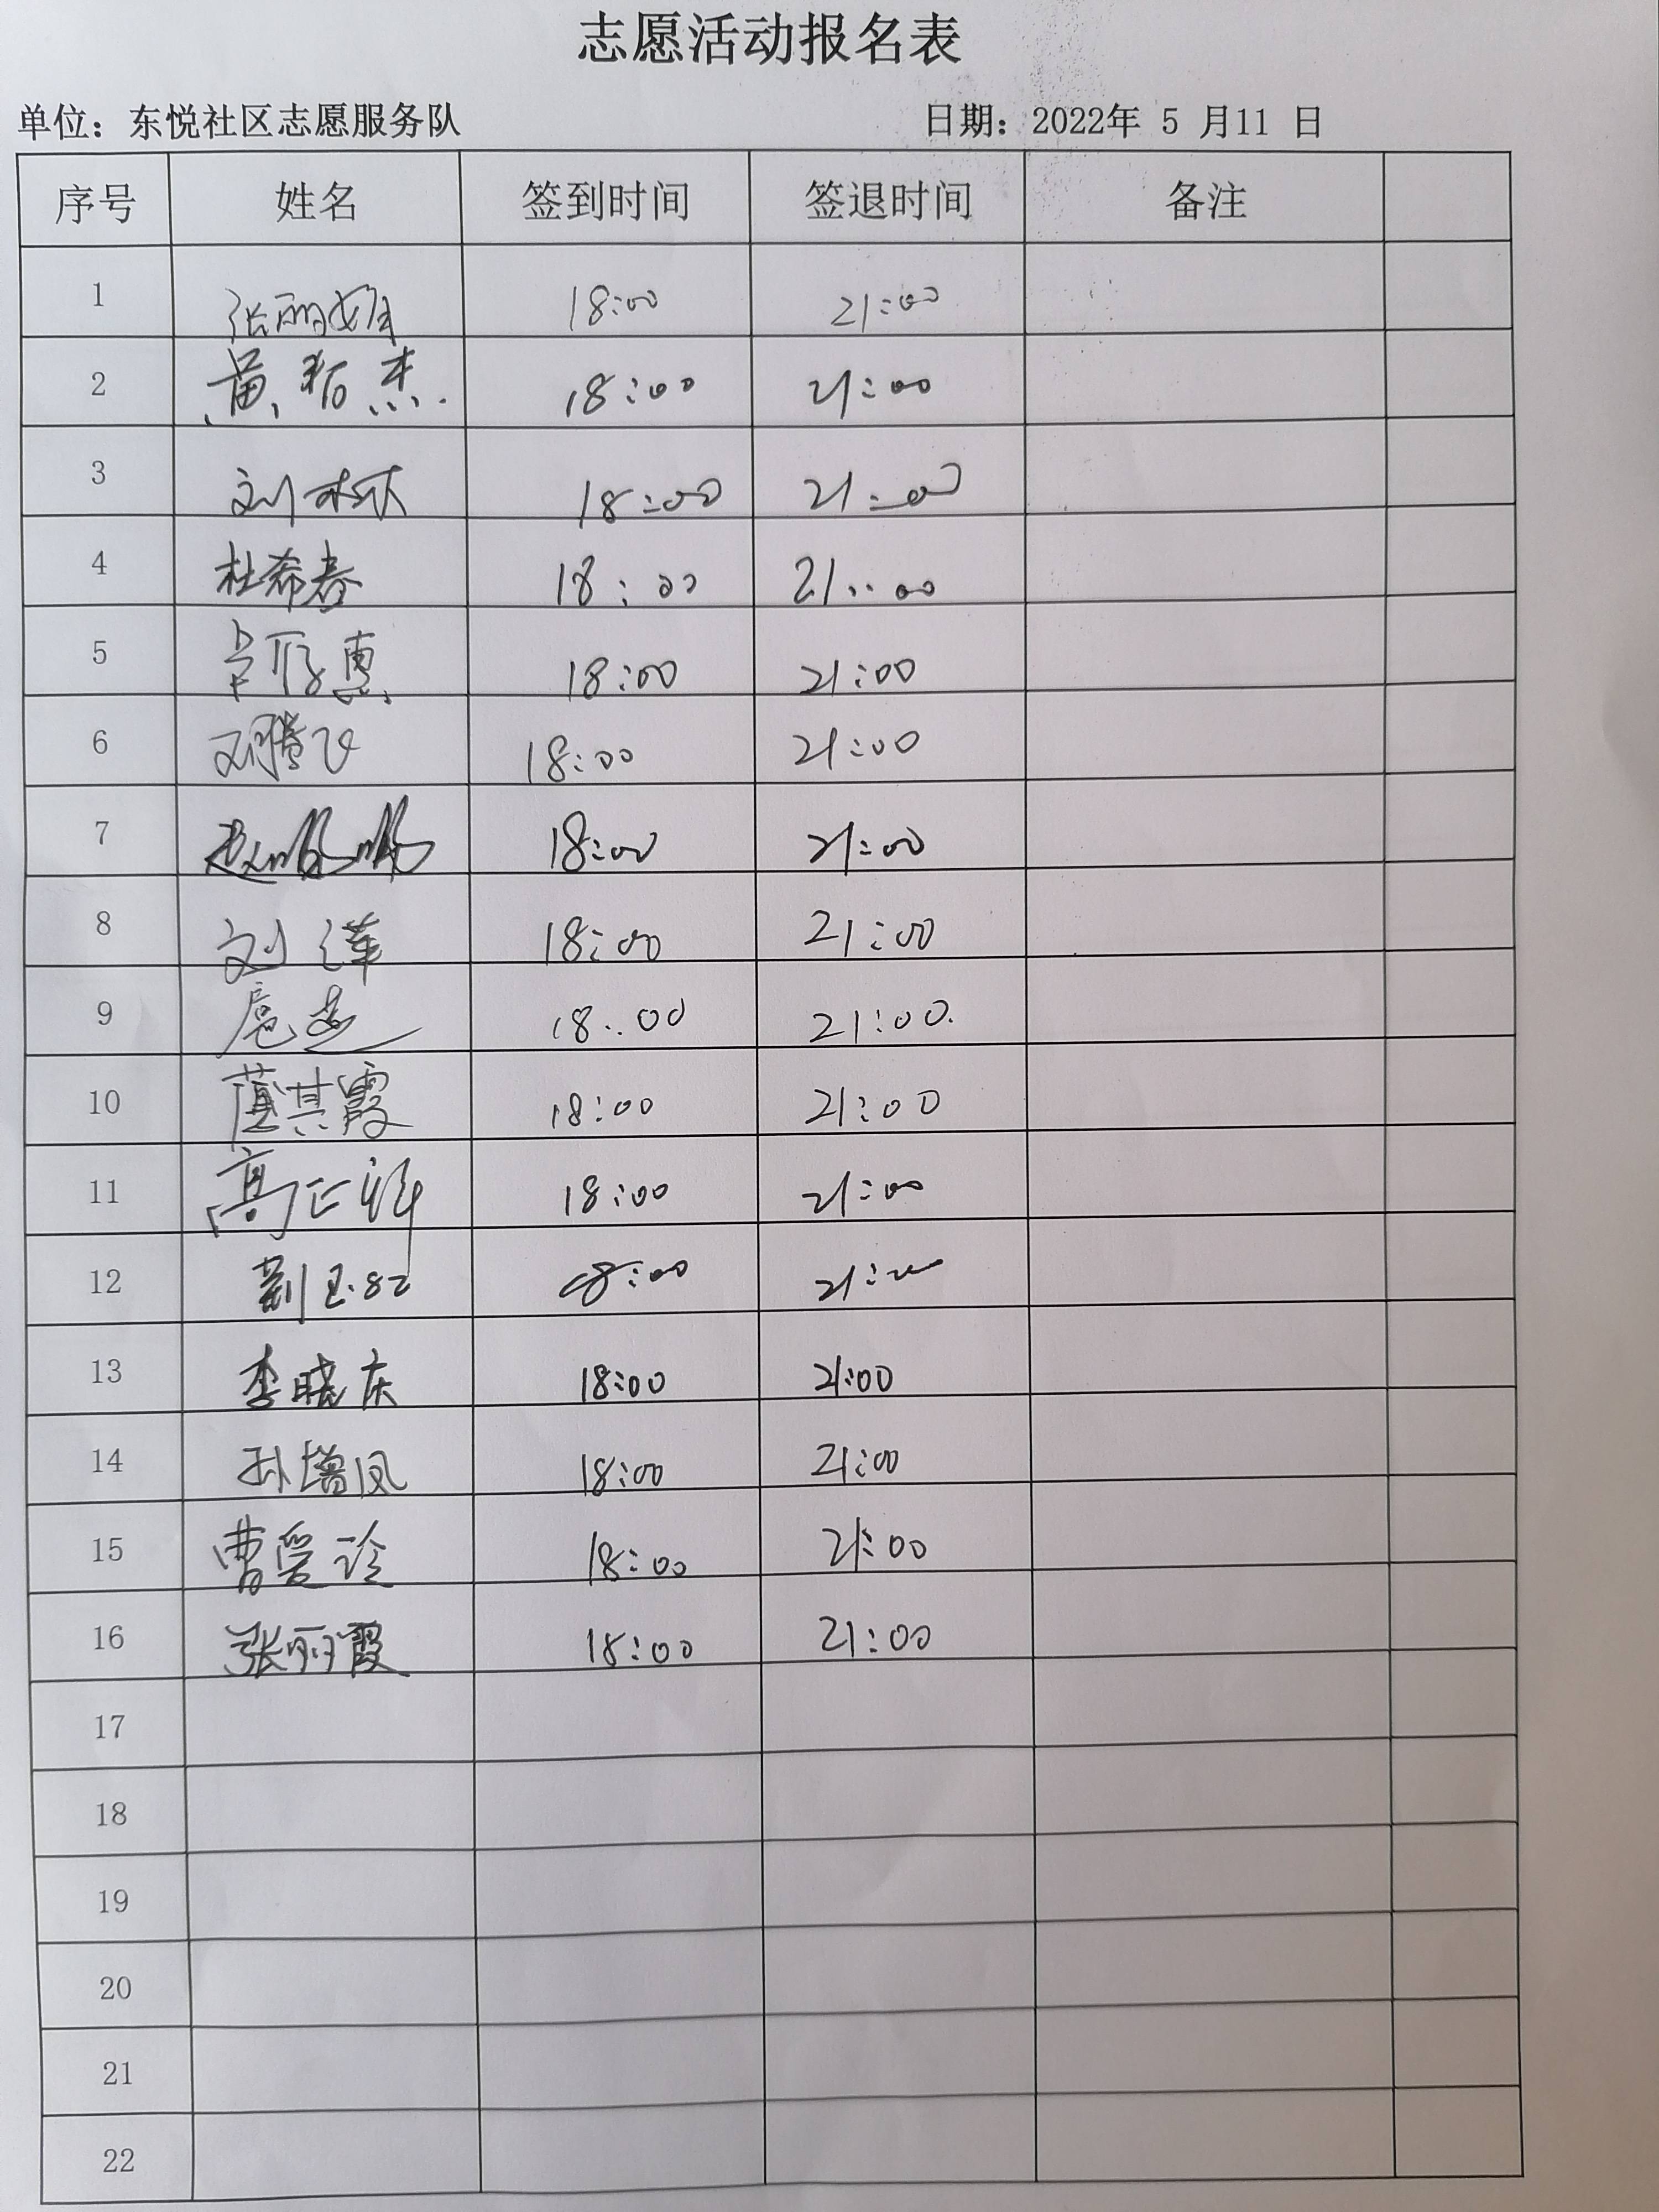 志愿活动报名表
单位：东悦社区志愿服务队 日期：2022年 5 月11 日
序号 姓名 签到时间 签退时间 备注
1 18:00 21:00
2 黄 杰 18:00 21:00
3 刘 18:00 21:00
4 杜希春 18:00 21:00
5 惠 18:00 21:00
6 邓腾飞 18:00 21:00
7 赵 18:00 21:00
8 刘 18:00 21:00
9 18:00 21:00
10 其霞 18:00 21:00
11 高 18:00 21:00
12 18:00 21:00
13 李晓庆 18:00 21:00
14 孙增凤 18:00 21:00
15 曹爱玲 18:00 21:00
16 张丽霞 18:00 21:00
17
18
19
20
21
22